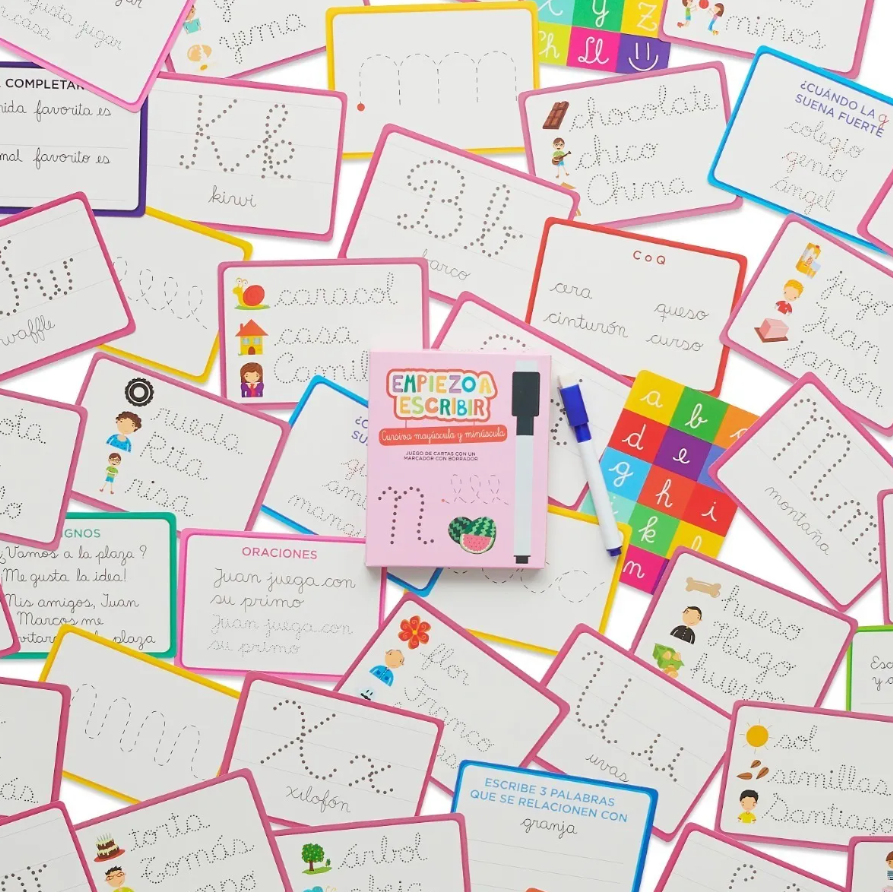 gusta jugar
casa
yema
y
z
Ll
niños
COMPLETAR
favorita es
favorito es
Kk
kiwi
mmm
chocolate
chico
China
¿CUÁNDO LA g
SUENA FUERTE
colegio
genio
ángel
Bb
barco
C o Q
cera
queso
cinturón
curso
jugo
Juan
jamón
waffle
caracol
casa
EMPIEZO A
ESCRIBIR
Cursiva mayúscula y minúscula
JUEGO DE CARTAS CON UN
MARCADOR CON BORRADOR
n
a
b
d
e
g
h
i
k
n
rueda
Rita
risa
Mm
montaña
¿Vamos a la plaza?
¡Me gusta la idea!
Mis amigos, Juan
Marcos me
plaza
ORACIONES
Juan juega con
su primo
Juan juega con
su primo
hueso
Hugo
huevo
flor
Franco
Uu
uvas
Xx
xilofón
sol
semillas
Santiago
ESCRIBE 3 PALABRAS
QUE SE RELACIONEN CON
granja
torta
Tomás
árbol